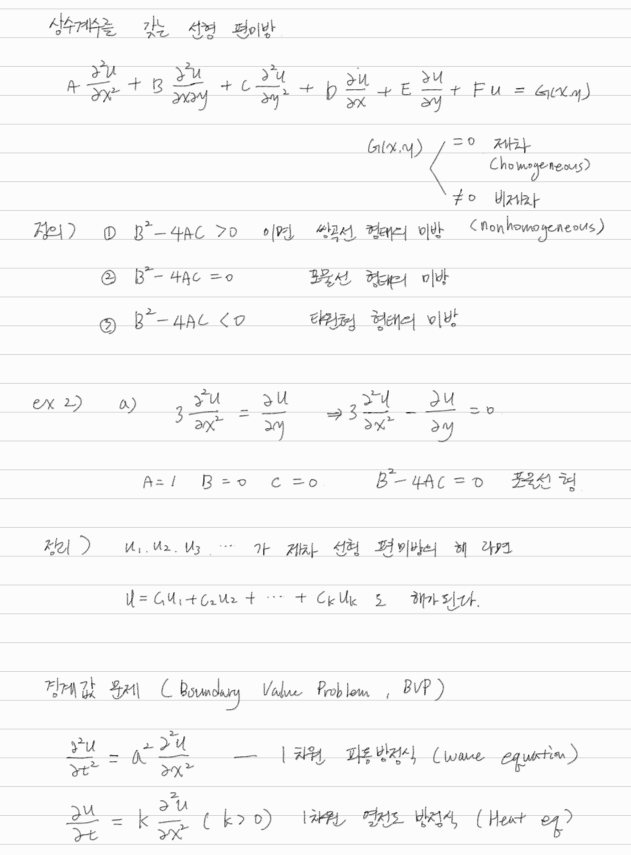 상수계수를 갖는 선형 편미방
A ∂²u/∂x² + B ∂²u/∂x∂y + C ∂²u/∂y² + D ∂u/∂x + E ∂u/∂y + Fu = G(x,y)
G(x,y) =0 제차
(homogeneous)
≠0 비제차
(nonhomogeneous)
정의) ① B²-4AC >0 이면 쌍곡선 형태의 미방
② B²-4AC =0 포물선 형태의 미방
③ B²-4AC <0 타원형 형태의 미방
ex 2) a) 3 ∂²u/∂x² = ∂u/∂y ⇒ 3 ∂²u/∂x² - ∂u/∂y =0
A=1 B=0 C=0 B²-4AC=0 포물선형
정리) u₁.u₂.u₃ … 가 제차 선형 편미방의 해 라면
u=C₁u₁+C₂u₂+ … + Cₖuₖ 도 해가된다.
경계값 문제 (Boundary Value Problem, BVP)
∂²u/∂t² = a² ∂²u/∂x² — 1차원 파동방정식 (wave equation)
∂u/∂t = k ∂²u/∂x² (k>0) 1차원 열전도 방정식 (Heat eq)